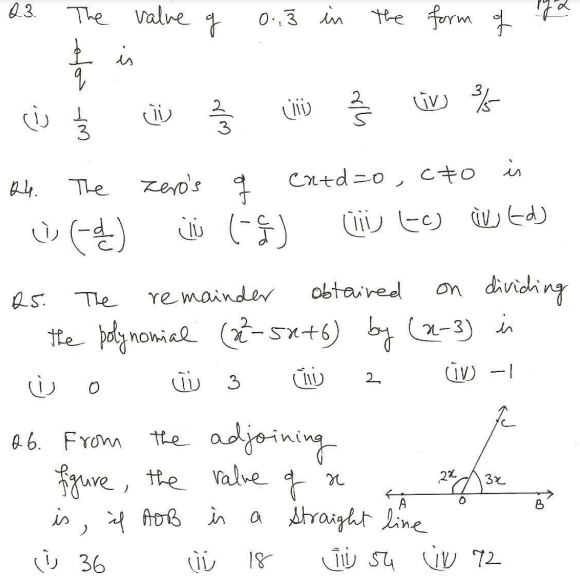 Q3. The value of 0.3̅ in the form of
p/q is
(i) 1/3 (ii) 2/3 (iii) 2/5 (iv) 3/5
Q4. The zero's of cx+d=0, c≠0 is
(i) (-d/c) (ii) (-c/d) (iii) (-c) (iv) (-d)
Q5. The remainder obtained on dividing
the polynomial (x²-5x+6) by (x-3) is
(i) 0 (ii) 3 (iii) 2 (iv) -1
Q6. From the adjoining
figure, the value of x
is, if AOB is a straight line
C
2x 3x
A O B
(i) 36 (ii) 18 (iii) 54 (iv) 72